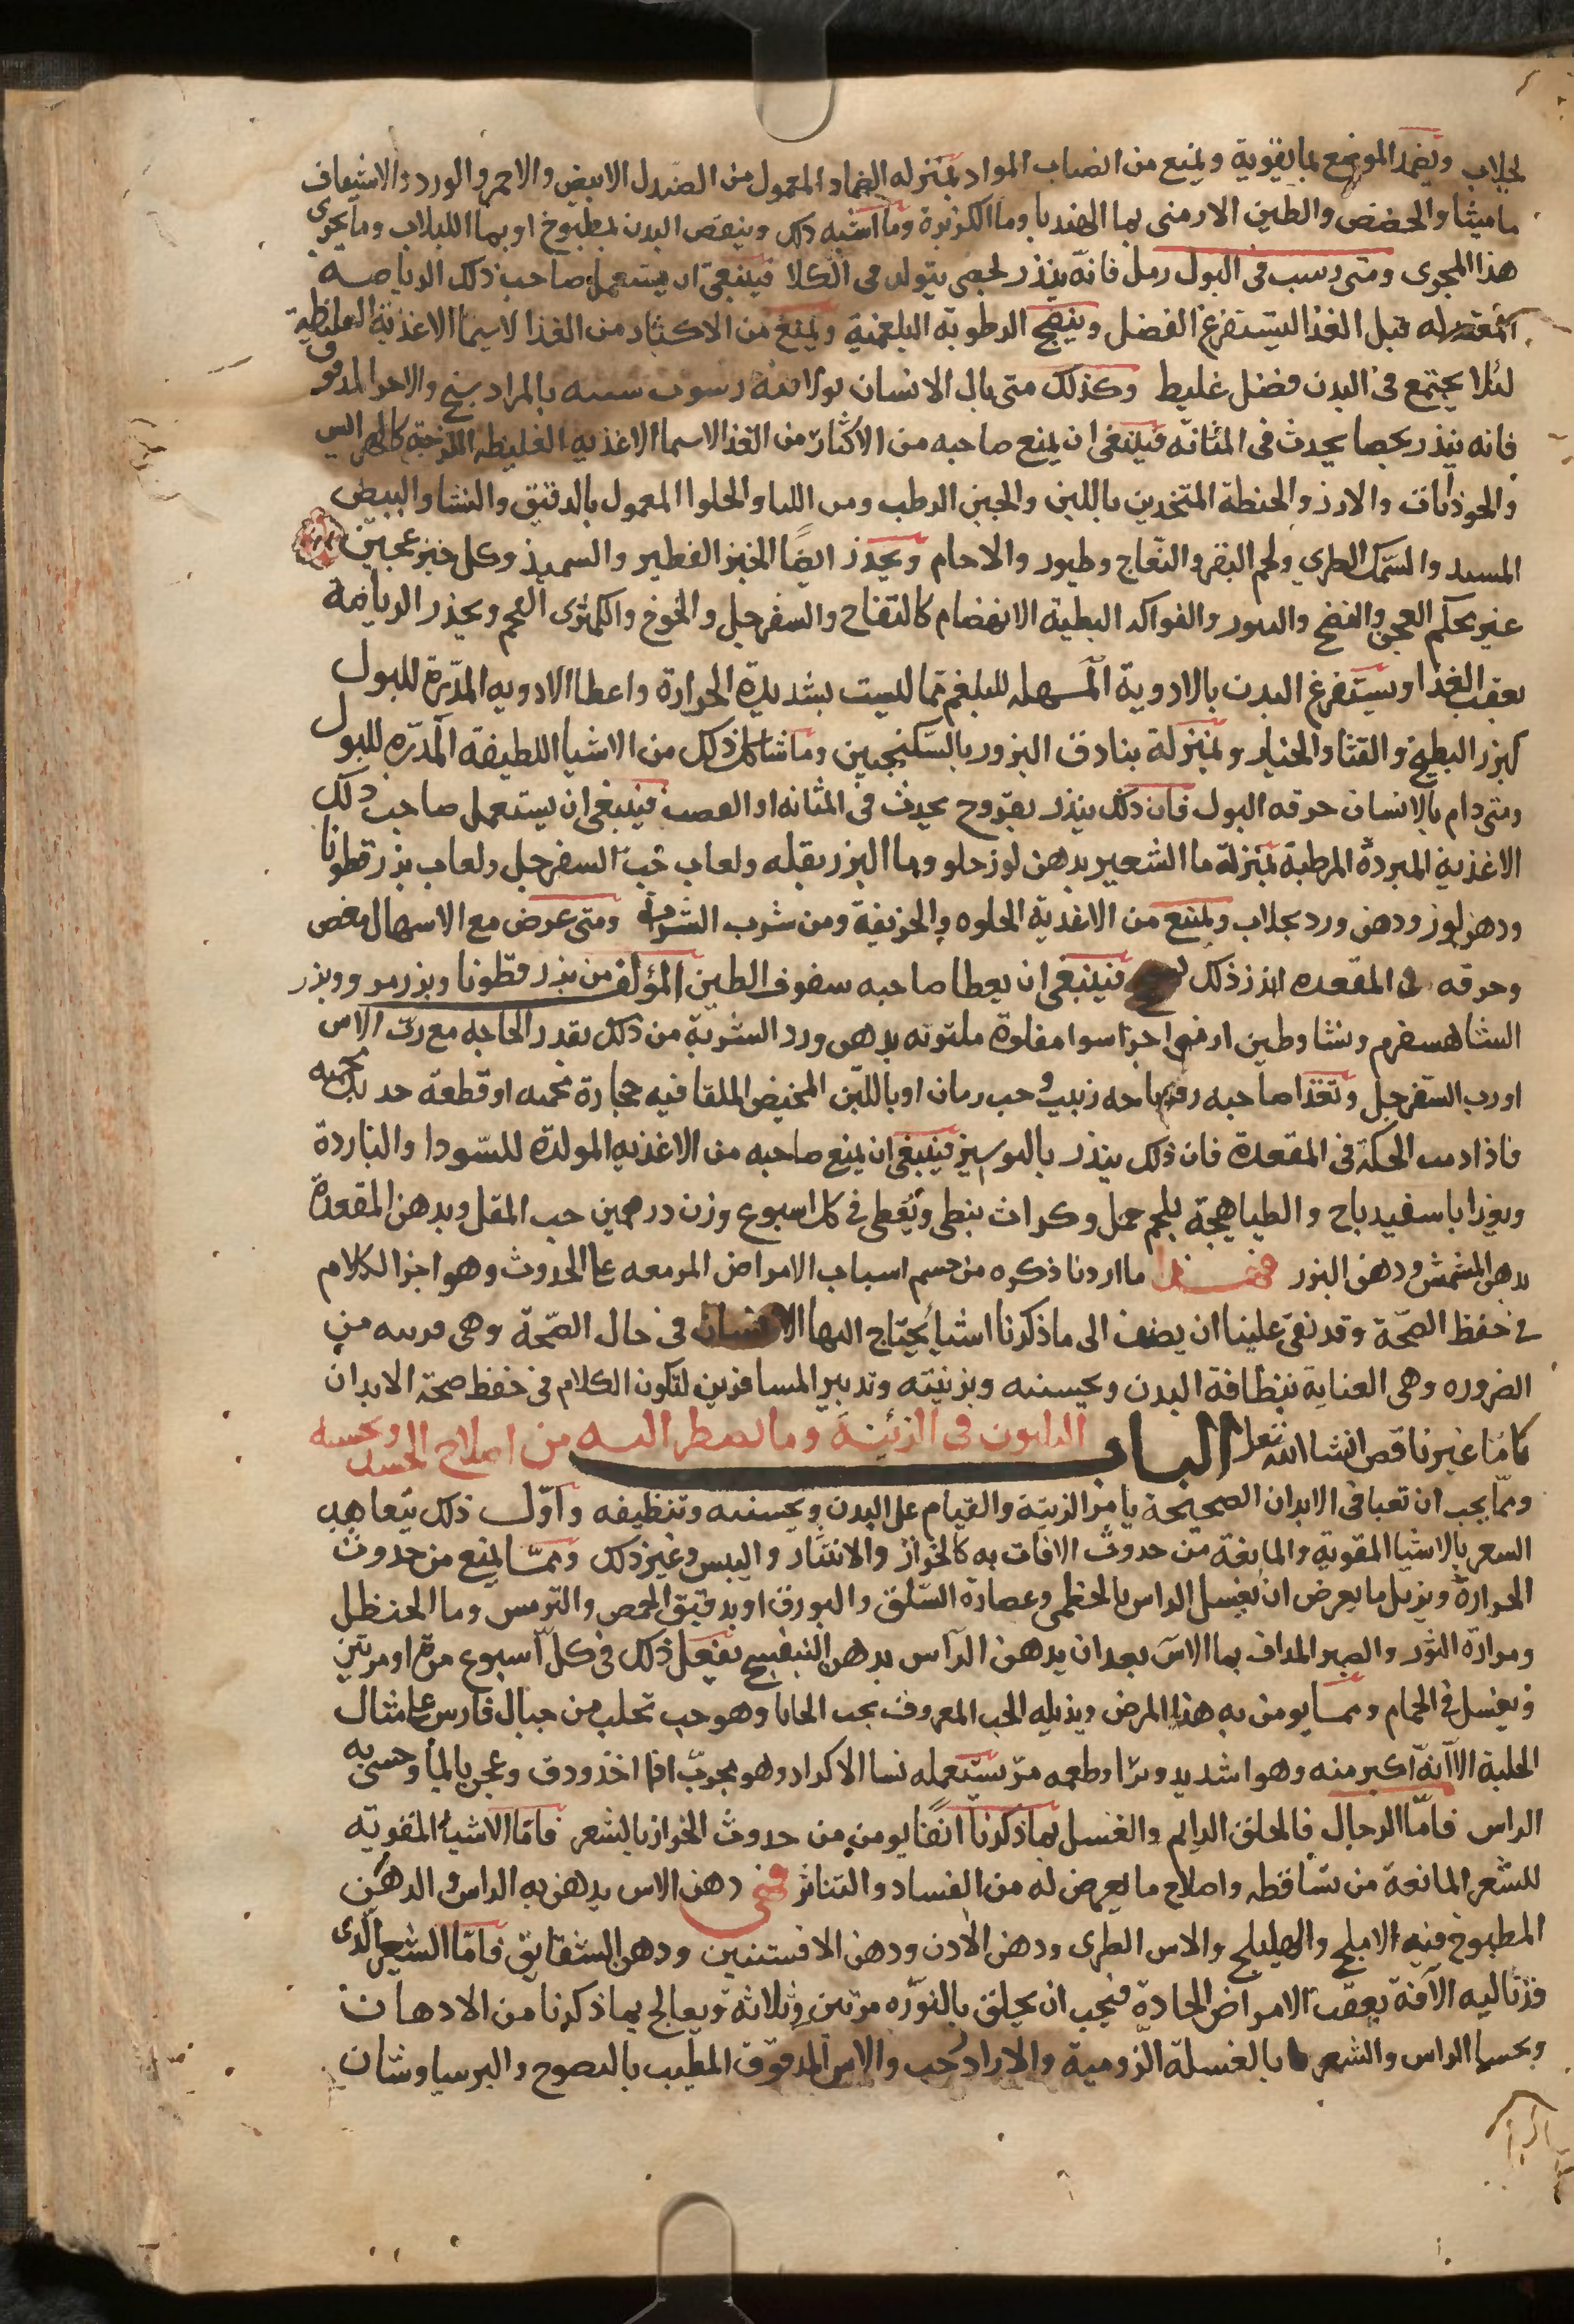 لجلاب ويضمد الموضع بما يقويه ويمنع من انصباب المواد بمنزله الضماد المعمول من الصندل الابيض والاحمر والورد والاشياف
ماميثا والحضض والطين الارمني بما الهندبا وما الكزبرة وما اشبه ذلك وينقص البدن بمطبوخ او بما اللبلاب وما يجري
هذا المجرى ومتى رسب في البول رمل فانه ينذر بحصى يتولد في الكلا فينبغي ان يستعمل صاحب ذلك الرياضة
المعتدله قبل الغذا ليستفرغ الفضل وينضج الرطوبة البلغمية ويمنع من الاكثار من الغذا لاسيما الاغذية الغليظة
لئلا يجتمع في البدن فضل غليظ وكذلك متى بال الانسان بولا فيه رسوب شبيه بالمرادسنج والاجر المدقوق
فانه ينذر بحصا يحدث في المثانه فينبغي ان يمنع صاحبه من الاكثار من الغذا لاسيما الاغذيه الغليظه اللزجة كالهرايس
والجوذابات والارز والحنطة المتخذين باللبن والجبن الرطب ومن اللبا والحلوا المعمول بالدقيق والنشا والبيض
والسمك الطري ولحم البقر والنعاج وطيور والاجام ويحذر ايضًا الخبز الفطير والسميذ وكل خبز عجين
غير محكم العجن والنضج والفواكه البطية الانهضام كالتفاح والسفرجل والخوخ والكمثرى الفج ويحذر الرياضة
بعقب الغذا ويستفرغ البدن بالادوية المسهله للبلغم مما ليست بشديدة الحرارة واعطا الادويه المدرة للبول
كبزر البطيخ والقثا والخيار وبمنزلة بنادق البزور بالسكنجبين وما شاكل ذلك من الاشيا اللطيفة المدره للبول
ومتى دام بالانسان حرقه البول فان ذلك ينذر بقروح يحدث في المثانه او القصب فينبغي ان يستعمل صاحب ذلك
الاغذية المبردة المرطبة بمنزلة ما الشعير بدهن لوز حلو وما البزر بقله ولعاب حب السفرجل ولعاب بزر قطونا
ودهن لوز ودهن ورد بجلاب ويمنع من الاغذية الحلوه والحريفة ومن شرب الشراب ومتى عرض مع الاسهال مغص
وحرقه في المقعده انذر ذلك فينبغي ان يعطا صاحبه سفوف الطين المؤلف من بزر قطونا وبزر مرو وبزر
الشاهسفرم ونشا وطين ارمني اجزا سوا مقلوة ملتوته بدهن ورد الشربة من ذلك بقدر الحاجه مع رب الاس
او رب السفرجل وتغذا صاحبه زبيب وحب رمان او باللبن المخيض الملقا فيه حجارة محميه او قطعة حديد محميه
فاذا دمت الحكة في المقعدة فان ذلك ينذر بالبوسير فينبغي ان يمنع صاحبه من الاغذيه المولدة للسودا والباردة
ويغذا باسفيدباج والطباهجة بلحم حمل وكراث نبطي ويعطى في كل اسبوع وزن درهمين حب المقل ويدهن المقعدة
بدهن المشمش ودهن البزر ما اردنا ذكره من حسم اسباب الامراض المزمعه على الحدوث وهو اخر الكلام
في حفظ الصحة وقد بقى علينا ان يضف الى ما ذكرنا اشيا يحتاج اليها الانسان في حال الصحة وهي قريبه من
الضروره وهي العناية بنظافة البدن وتحسينه وتزينته وتدبير المسافرين لتكون الكلام في حفظ صحة الابدان
كاملا غير ناقص انشا الله تعالى الباب الثلثون في الزينة وما يضطر اليه من اصلاح الجسد وتحسينه
ومما يجب ان تعبا في الابدان الصحيحة يا من الزينة والقيام على البدن وتحسينه وتنظيفه واول ذلك يتعاهد
الشعر بالاشيا المقوية والمانعة من حدوث الافات به كالحزاز والانتثار واليبس وغير ذلك ومما يمنع من حدوث
الحرارة ويزيل ما يعرض ان يغسل الراس بالخطمى وعصارة السلق والبورق او بدقيق الحمص والترمس وما الحنظل
ومرارة الثور والصبر المداف بما الاس بعد ان يدهن الراس بدهن البنفسج يفعل ذلك في كل اسبوع مرة او مرتين
ويغسل في الحمام ومما يومن به هذا المرض ويزيله الحب المعروف بحب وهو حب تجلب من جبال فارس على مثال
الحلبة الا انه اكبر منه وهو شديد وطعمه مر يستعمله نسا الاكراد وهو مجرب اذا اخذ ودق وعجن بالما وحشي به
الراس فاما الرجال فالحلق الدايم والغسل بما ذكرنا انفًا يومن من حدوث الحزاز بالشعر فاما الاشيا المقوية
للشعر المانعة من تساقطه واصلاح ما يعرض له من الفساد والتناثر فهي دهن الاس يدهن به الراس والدهن
المطبوخ فيه الاملج والهليلج والاس الطرى ودهن الادن ودهن الافسنتين ودهن الشقايق فاما الشعر الذي
قد تاليه الآفة بعقب الامراض الحادة فيجب ان يحلق بالنوره مرتين وثلاثة ويعالج بما ذكرنا من الادهان
الراس والشعر بالغسلة الرومية والازاد درخت والاس المدقوق المطيب بالنضوح والبرسياوشان